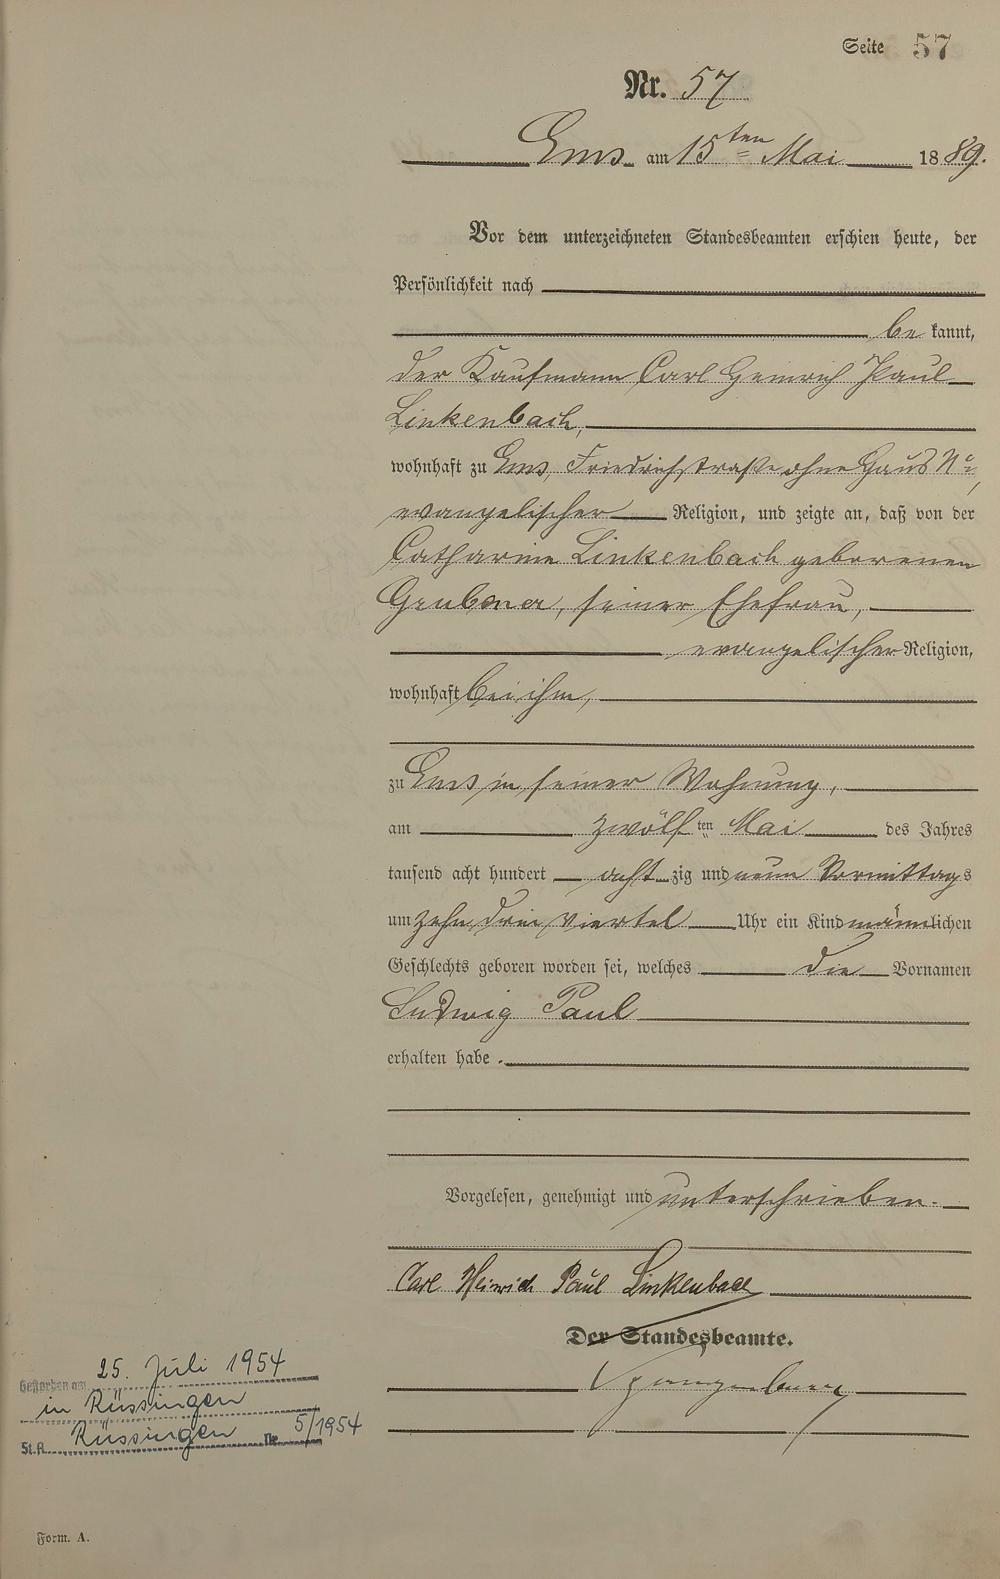 Seite 57
Nr. 57
Ems am 15ten Mai 1889.
Vor dem unterzeichneten Standesbeamten erschien heute, der
Persönlichkeit nach
be kannt,
der Kaufmann Carl Heinrich Paul
Linkenbach,
wohnhaft zu Ems, Friedrichstraße ohne Haus No,
evangelischer Religion, und zeigte an, daß von der
Catharine Linkenbach geborenen
seiner Ehefrau,
evangelischer Religion,
wohnhaft bei ihm,
zu Ems in seiner Wohnung,
am zwölften Mai des Jahres
tausend acht hundert acht zig und neun Vormittags
um zehn drei viertel Uhr ein Kind männlichen
Geschlechts geboren worden sei, welches die Vornamen
Ludwig Paul
erhalten habe.
Vorgelesen, genehmigt und unterschrieben.
Carl Heinrich Paul Linkenbach
Der Standesbeamte.
Gestorben am 25. Juli 1954
in Rüssingen
St.A. Rüssingen Nr. 5/1954
Form. A.